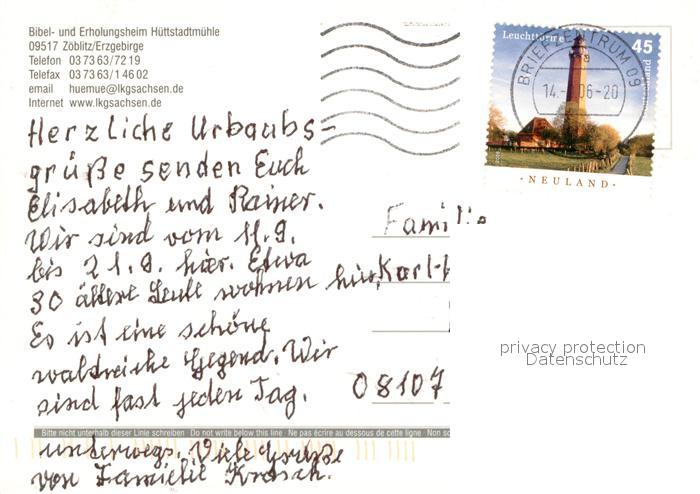 Bibel- und Erholungsheim Hüttstadtmühle
09517 Zöblitz/Erzgebirge
Telefon 0 37 63/72 19
Telefax 0 37 63/1 46 02
email huemue@lkgsachsen.de
Internet www.lkgsachsen.de
Herzliche Urlaubs-
grüße senden Euch
Elisabeth und Rainer.
Wir sind vom 11.9.
bis 21.9. hier. Etwa
30 ältere Leute wohnen hier.
Es ist eine schöne
waldreiche Gegend. Wir
sind fast jeden Tag.
Bitte nicht unterhalb dieser Linie schreiben · Do not write below this line · Ne pas écrire au dessous de cette ligne · Non sc
unterwegs. Viele Grüße
von Familie
Leuchttürme
45
BRIEFZENTRUM 09
06-20
· NEULAND ·
Famili
Karl-
08107
privacy protection
Datenschutz